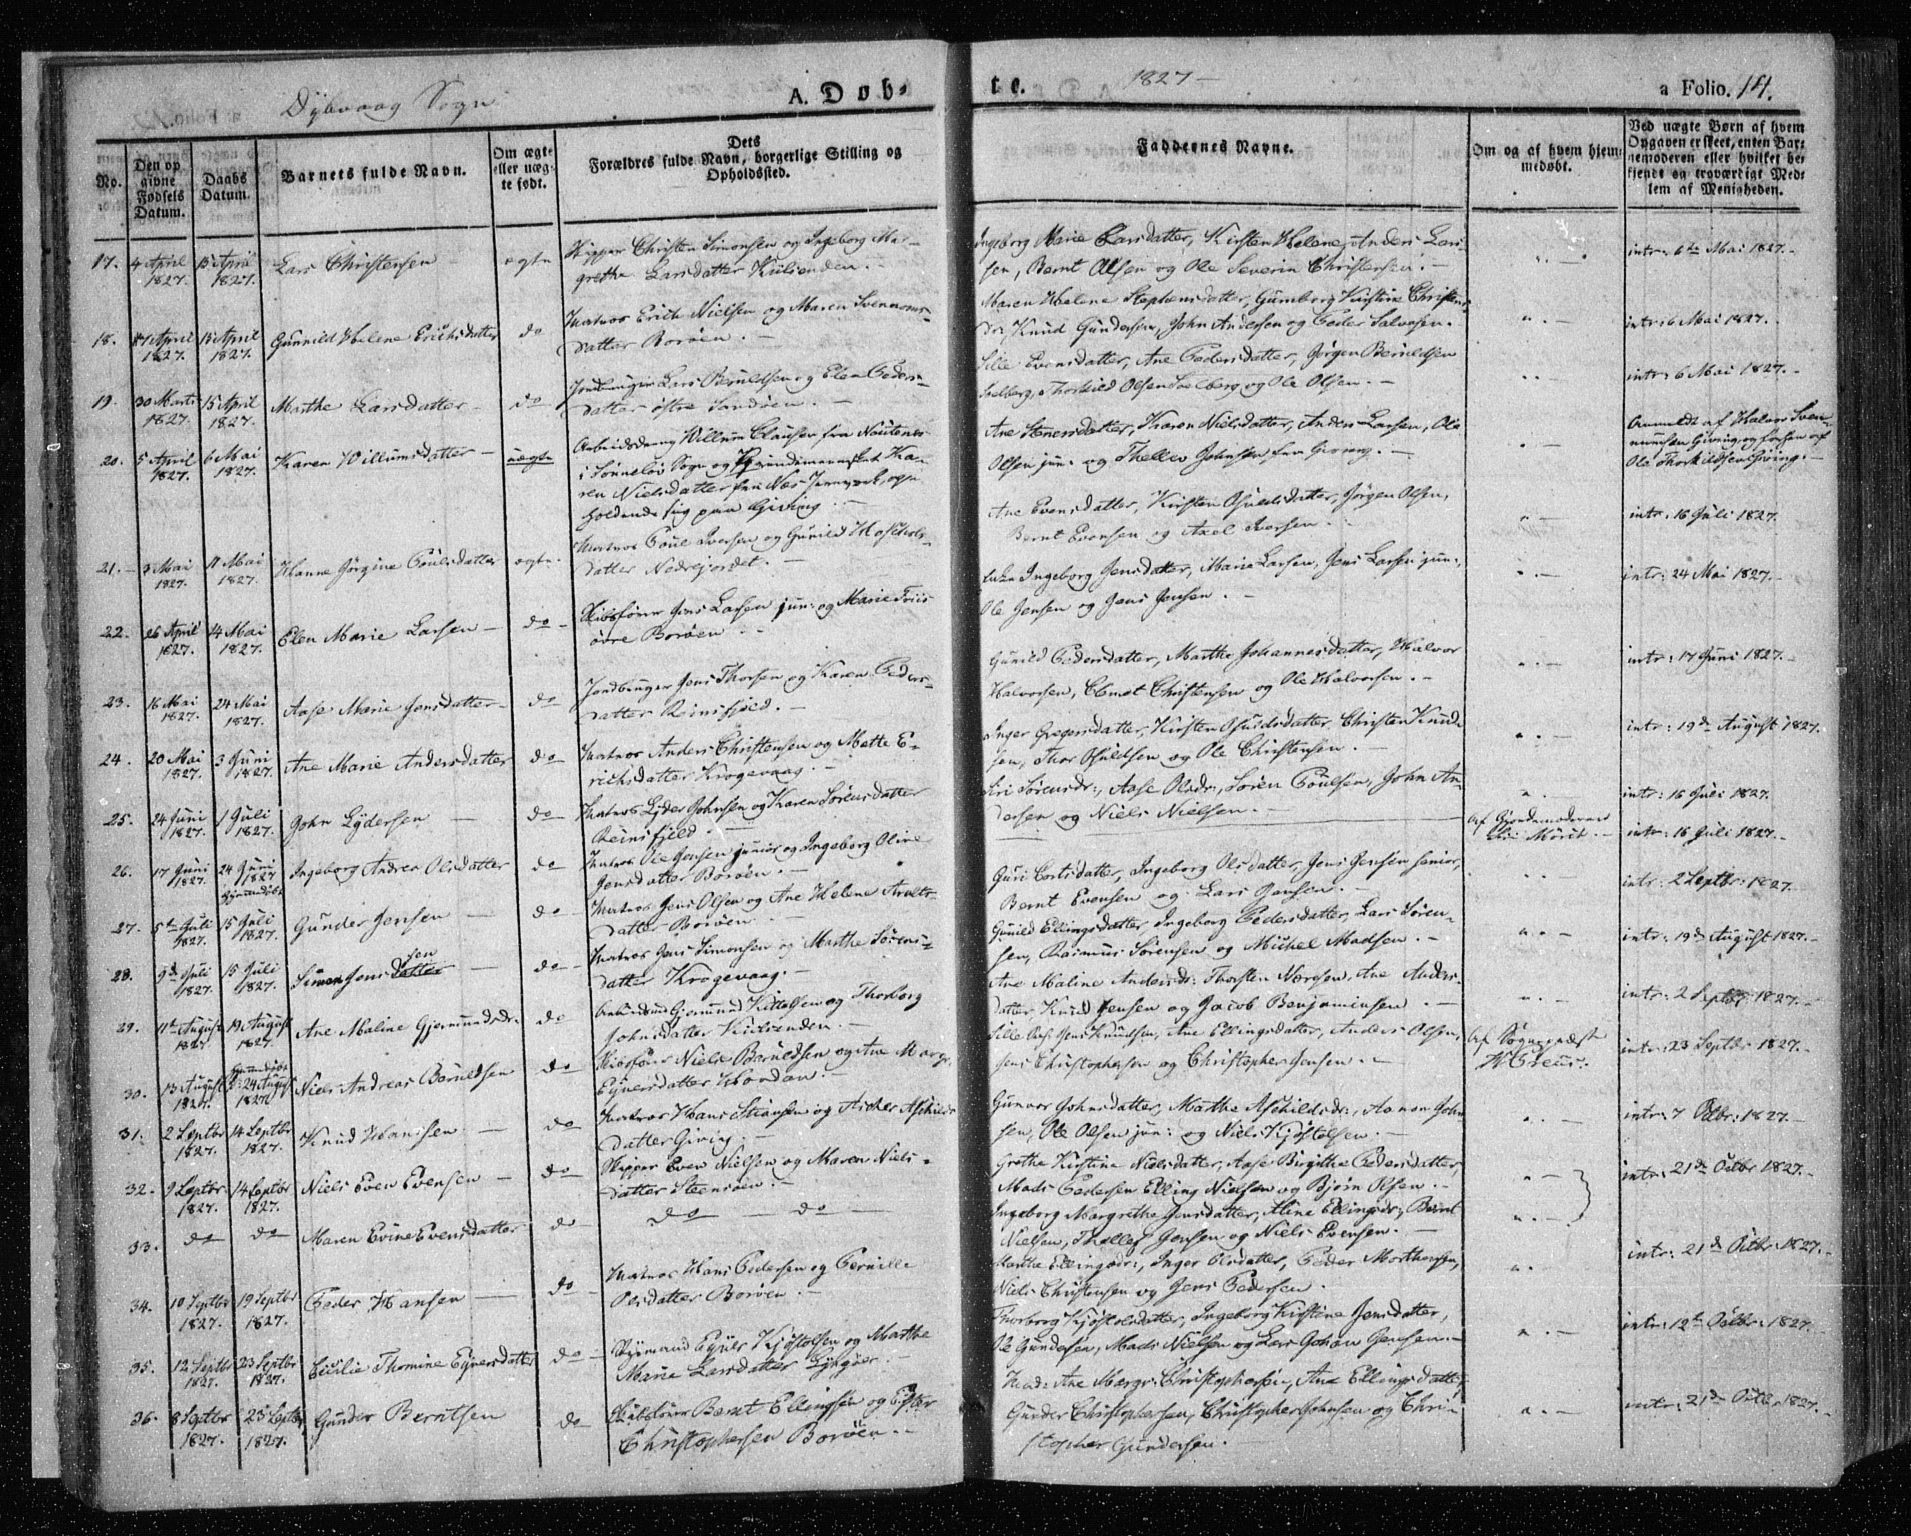 Dybvaag Sogn
A. Døb-
No.
Den op
givne
Fødsels
Datum.
Daabs
Datum.
Barnets fulde Navn.
Om ægte
eller uæg-
te født.
Dets
Forældres fulde Navn, borgerlige Stilling og
Opholdssted.
17.
4 April
1827.
15 April
1827.
Lars Christensen
ægte
Skipper Christen Simonsen og Ingeborg Mar-
grethe Larsdatter
18.
April
1827.
15 April
1827.
Gunnild Helene Erichsdatter
do
Matros Erich Nielsen og Maren Svennoms-
datter Borøen.
19.
30 Marti
1827.
15 April
1827.
Marthe Larsdatter
do
Jordbruger Lars Beruldsen og Elen Peders-
datter østre Sandøen.
20.
5 April
1827.
6 Mai
1827.
Karen Willumsdatter
uægte
Arbeidsdreng Willum Clausen fra
i Sønneløv Sogn og Qvindemennesket Ka-
ren Nielsdatter fra Næs Jernværk, op-
holdende sig paa Giving
21.
Mai
1827.
11 Mai
1827.
Hanne Jørgine Poulsdatter
ægte
Matros Poul Iversen og Gunild
datter Nedrejordet.
22.
26 April
1827.
14 Mai
1827.
Elen Marie Larsen
do
Skibsfører Jens Larsen jun: og Marie Friis
øvre Borøen.
23.
16 Mai
1827.
24 Mai
1827.
Aase Marie Jensdatter
do
Jordbruger Jens Thorsen og Karen Peders-
datter Reinsfjeld.
24.
20 Mai
1827.
3 Juni
1827.
Ane Marie Andersdatter
do
Matros Anders Christensen og Mette E-
richsdatter Krogevaag.
25.
24 Juni
1827.
1 Juli
1827.
John Lydersen
do
Matros Lyder Johnsen og Karen Sørensdatter
Reinsfjeld.
26.
17 Juni
1827.
24 Juni
1827
hjemmedøbt
Ingeborg Andrea Olsdatter
do
Matros Ole Jensen junior og Ingeborg Oline
Jensdatter Borøen.
27.
5te Juli
1827.
15 Juli
1827.
Gunder Jensen
do
Matros Jens Olsen og Ane Helene
datter Borøen
28.
9de Juli
1827.
15 Juli
1827.
Simon Jensdatter
sen
do
Matros Jens Simonsen og Marthe Sørens-
datter Krogevaag.
29.
11te August
1827
19 August
1827.
Ane Maline Gjermundsdr.
do
Gjermund Kittelsen og Thorborg
Johnsdatter
30.
13 August
1827.
hjemmedøbt
d: 24 August
1827.
Niels Andreas Beruldsen
do
Skibsfør: Niels Beruldsen og Ane Margr.
Eynersdatter
31.
2 Septbr
1827.
14 Septbr
1827.
Knud Hansen
do
Matros Hans
datter Giving.
32.
9 Septbr
1827.
14 Septbr
1827.
Niels Even Evensen
do
Skipper Even Nielsen og Maren Niels-
datter Steensøen.
33.
do
do
Maren Evine Evensdatter
do
do
do
34.
10 Septbr
1827.
19 Septbr
1827.
Peder Hansen
do
Matros Hans Pedersen og Pernille
Olsdatter Borøen.
35.
12 Septbr
1827.
23 Septbr
1827.
Cicilie Thomine Eynersdatter
do
Eyner Kjøstolsen og Marthe
Marie Larsdatter Lyngøer.
36.
8 Septbr
1827.
23 Septbr
1827.
Gunder Berntsen
do
Skibsfører Bernt Ellingsen og Ester
Christophersen Borøen.
te.
1827
a Folio. 14.
Faddernes Navne.
Om og af hvem hjem-
medøbt.
Ved uægte Børn af hvem
Opgaven er skeet, enten Bar-
nemoderen eller hvilket be-
kjendt og troværdigt Med-
lem af Menigheden.
Ingeborg Marie Larsdatter, Kirsten Helene, Anders Lar-
sen, Bernt Olsen og Ole Severin Christensen.
intr: 6te Mai 1827.
Maren Helene Stephensdatter, Gunborg Kirstine Christens-
dr; Knud Gundersen, John Andersen og Peder Salvesen.
intr: 6 Mai 1827.
Sille Evensdatter, Ane Pedersdatter, Jørgen Beruldsen
Selberg, Thorkild Olsen Selberg og Ole Olsen.
intr: 6 Mai 1827.
Ane Stenersdatter, Karen Nielsdatter, Anders Larsen, Ole
Olsen jun: og Thellev Johnsen fra Giving.
Anmeldt af Halvor Sven-
numsen Giving og
Ole Thorkildsen Giving.
Ane Evensdatter, Kirsten Osuldsdatter, Jørgen Olsen,
Bernt Evensen og Axel Iversen.
intr: 16 Juli 1827.
Ingeborg Jensdatter, Marie Larsen, Jens Larsen jun:,
Ole Jensen og Jens Jensen.
intr: 24 Mai 1827.
Gunild Pedersdatter, Marthe Johannesdatter, Halvor
Halvorsen, Christensen og Ole Halvorsen.
intr: 17 Juni 1827.
Inger Gregersdatter, Kirsten Osuldsdatter Christen Knud-
sen, Thor Osuldsen og Ole Christensen.
intr: 19de August 1827.
Siri Sørensdr:, Aase Olsdr:, Søren Poulsen, John An-
dersen og Niels Nielsen.
intr: 16 Juli 1827.
Af Gjordemoderen
intr: 16 Juli 1827.
Guri Cortsdatter, Ingeborg Olsdatter, Jens Jensen senior,
Bernt Evensen og Lars Jensen.
intr: 2 Septbr: 1827.
Gunild Ellingsdatter, Ingeborg Pedersdatter, Lars Søren-
sen, Rasmus Sørensen og Michel Madsen.
intr: 19de August 1827.
Ane Maline Andersdr: Thorsten Ane Anders-
datter, Knud Jensen og Jacob Benjaminsen.
intr: 2 Septbr 1827.
Sille Jens Knudsen, Ane Ellingsdatter, Anders Olsen,
Jens Christophersen og Christopher Jensen.
Af Sognepræst
intr: 23 Septbr 1827.
Gunnor Johnsdatter, Marthe Aschildsdr:, Aanon John-
sen, Ole Olsen jun: og Niels Kjøstolsen.
intr: 7 Octbr: 1827.
Grethe Kirstine Nielsdatter, Aase Birgithe Pedersdatter,
Mads Pedersen Elling Nielsen og Bjørn Olsen.
intr: 21de Octbr 1827.
Ingeborg Margrethe Jensdatter, Aline Ellingsdr; Bernt
Nielsen, Thellef Jensen og Niels Evensen.
Marthe Ellingsdr:, Inger Olsdatter, Peder Mortensen,
Niels Christensen og Jens Pedersen.
intr: 21de Octbr: 1827.
Thorborg Kjøstolsdatter, Ingeborg Kirstine Jensdatter,
Ole Gundersen, Mads Nielsen og Lars Johan Jensen.
intr: 12te Octbr: 1827.
Ane Margr: Christophersen, Ane Ellingsdatter,
Gunder Christophersen, Christopher Johnsen og Chri-
stopher Gundersen.
intr: 21de Octbr. 1827.